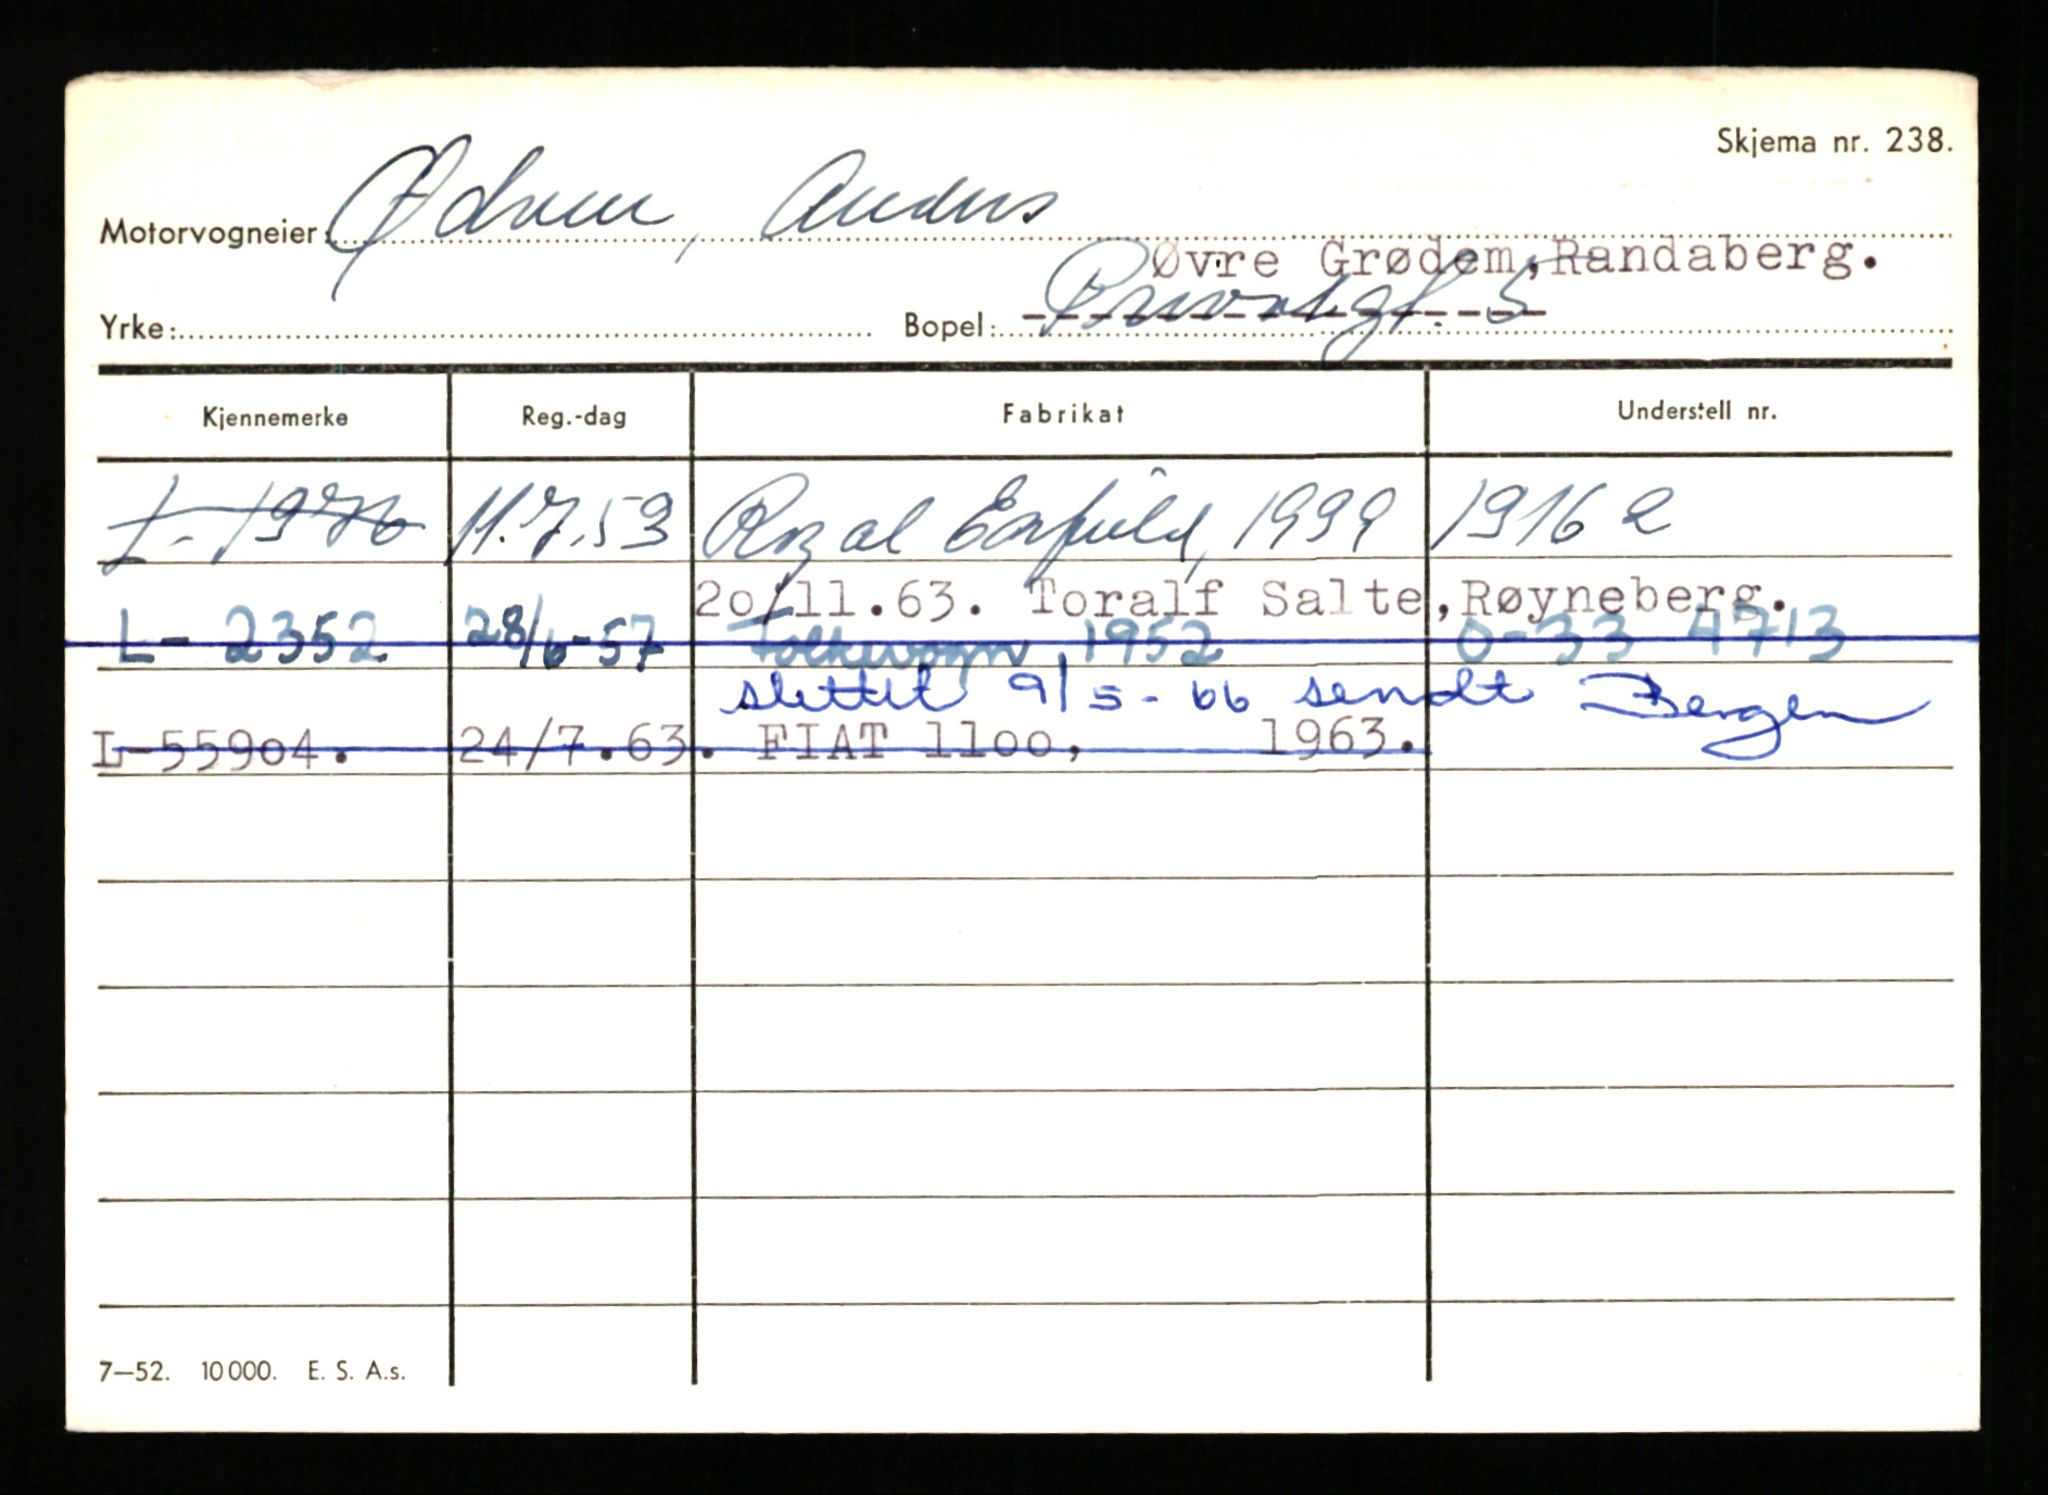 Skjema nr. 238.
Motorvogneier: Ødven, Anders
Øvre Grødem, Randaberg.
Yrke: Bopel: 5
Kjennemerke Reg.-dag Fabrikat Understell nr.
L-1976 11.7.53 Royal Enfield, 1949 19162
20/11.63. Toralf Salte, Røyneberg.
L- 2352 28/6-57 Folkevogn 1952 0-33 4713
slettet 9/5-66 sendt Bergen
L-55904. 24/7.63. FIAT 1100, 1963.
7—52. 10 000. E. S. A.s.